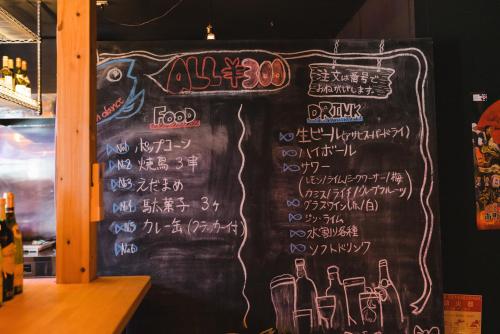 ALL ¥300
注文は番号で
おねがいします。
FOOD
No1 ポップコーン
No2 焼鳥 3串
No3 えだまめ
No4 駄菓子 3ヶ
No5 カレー缶(クラッカー付)
No6
DRINK
生ビール(アサヒスーパードライ)
ハイボール
サワー
(レモン/ライム/シークワーサー/梅
カシス/ライチ/グレープフルーツ)
グラスワイン(赤/白)
ジン・ライム
水割り各種
ソフトドリンク